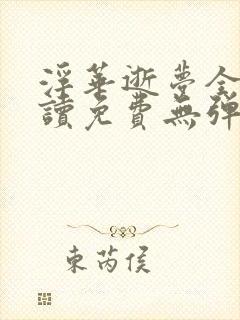 淫華逝夢全
讀免費無彈
東芮侯